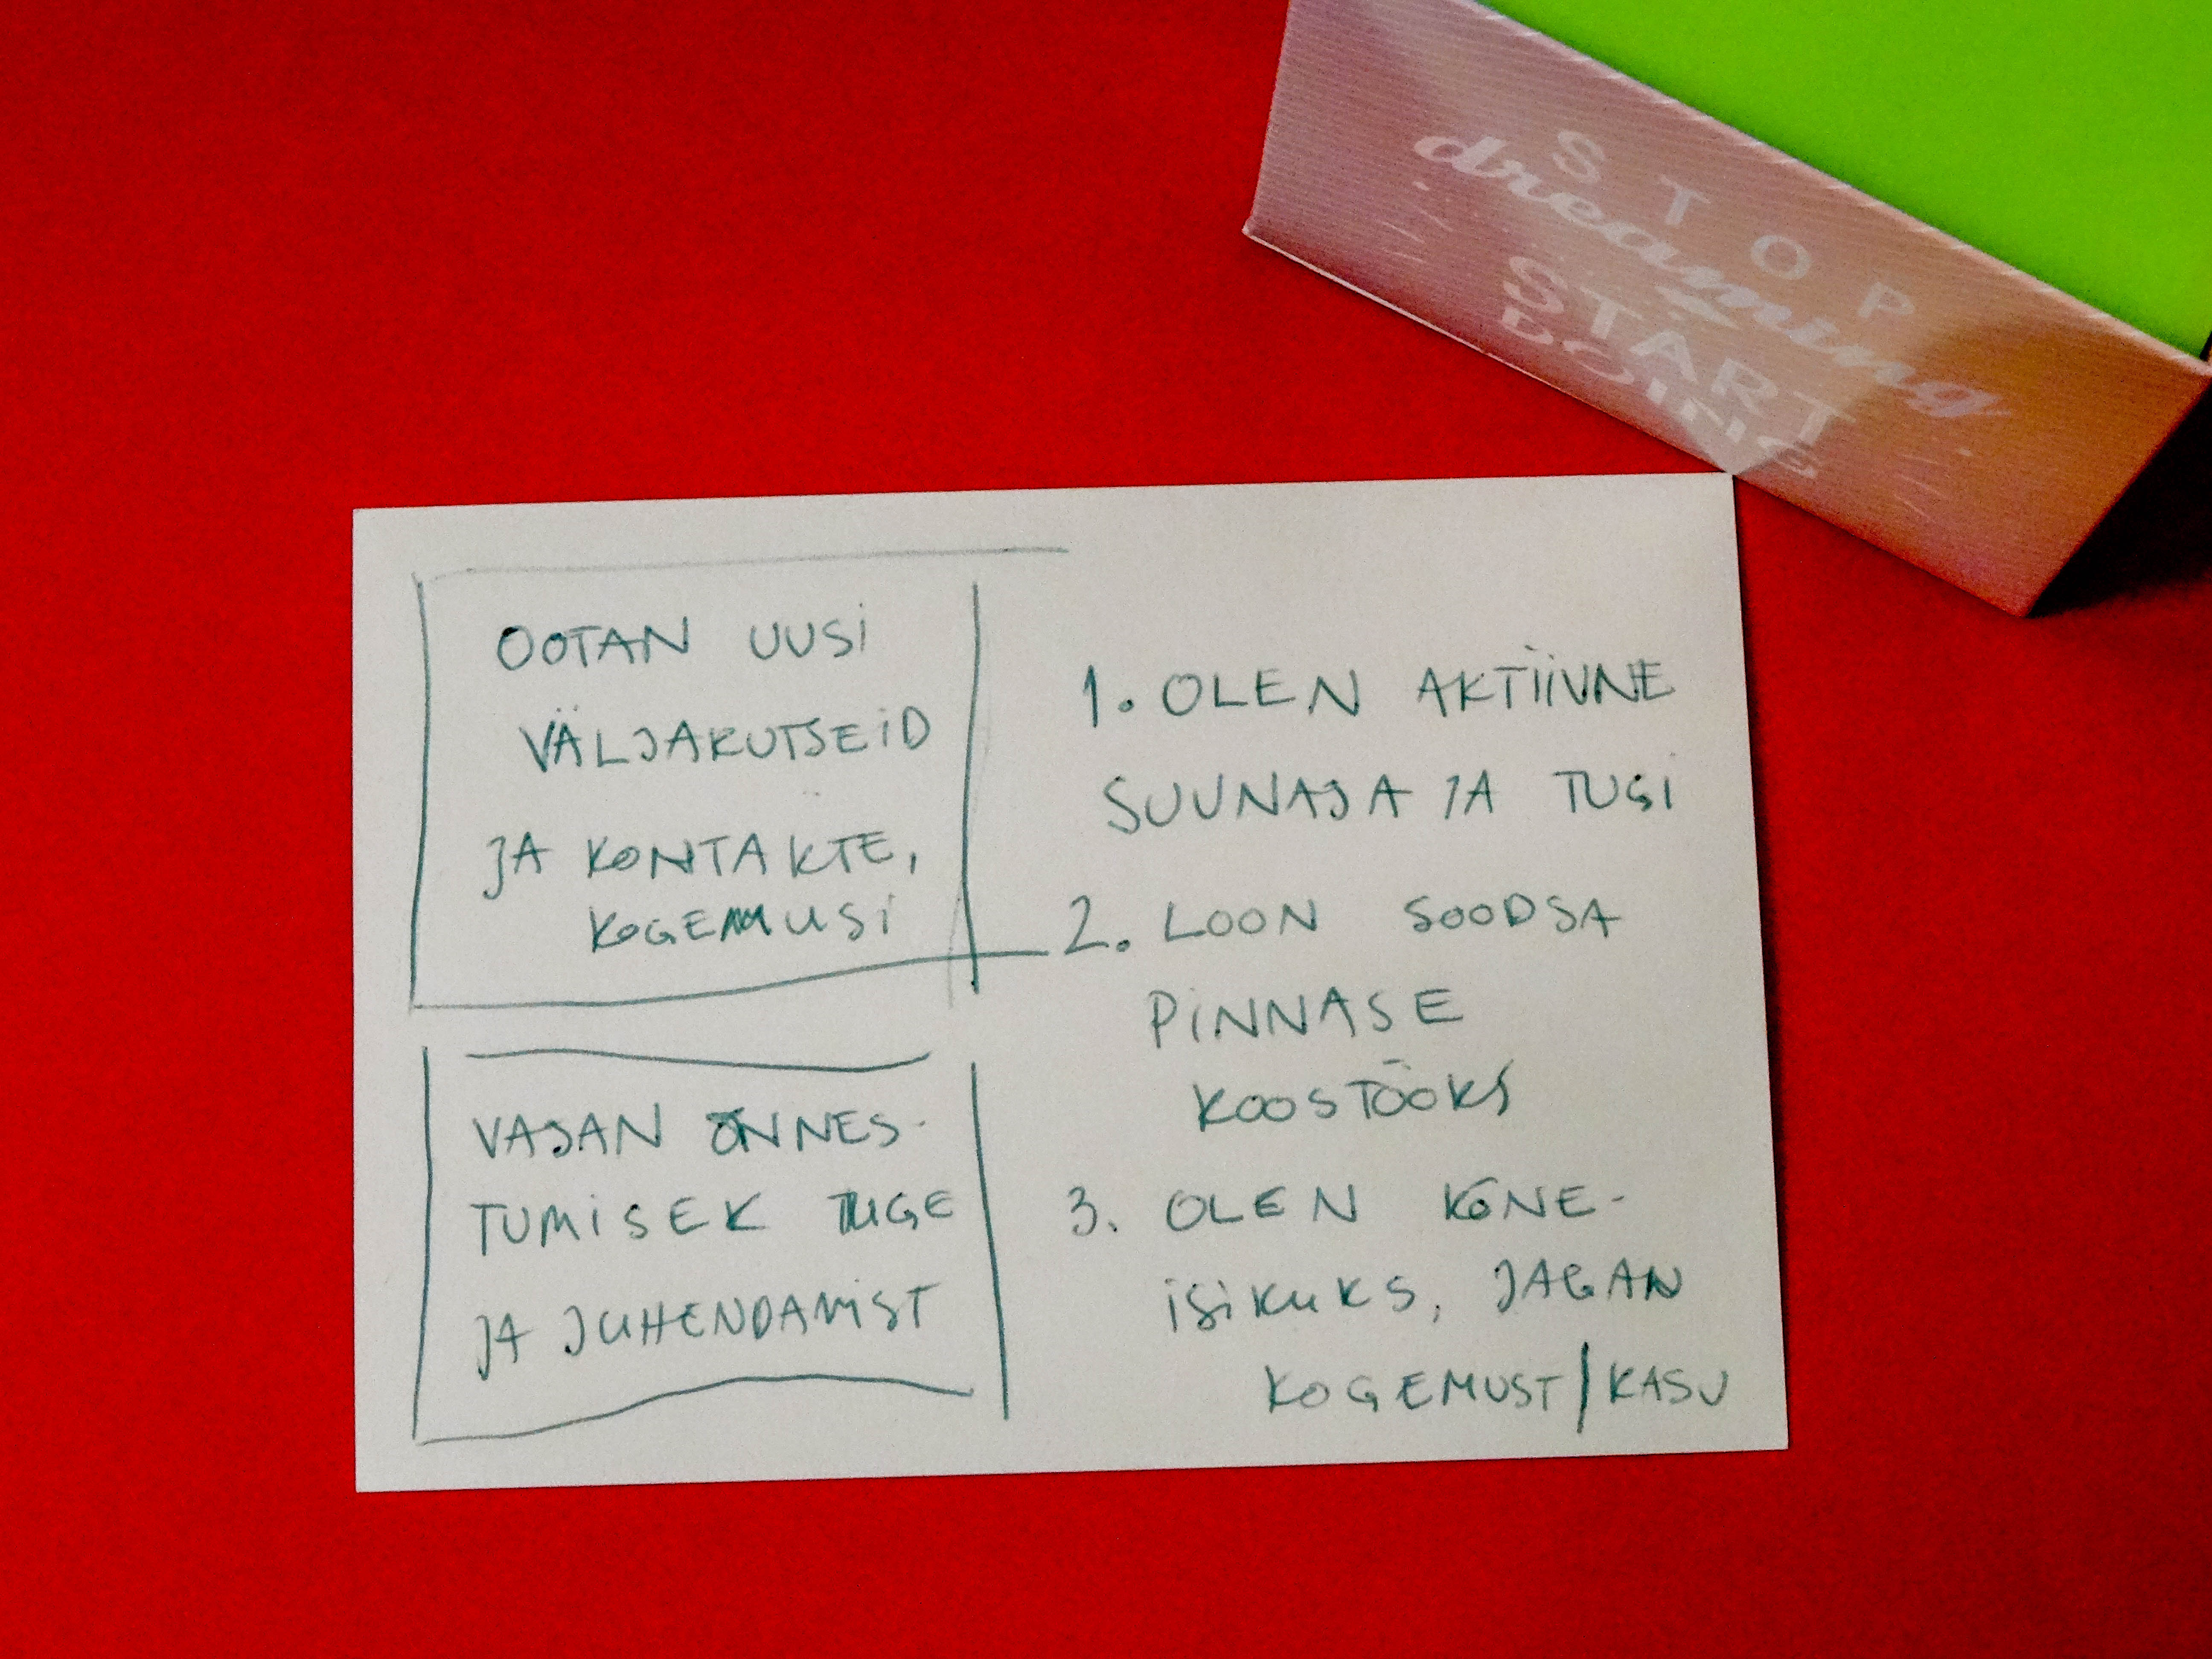 STOP
dreaming
START
DOING
OOTAN UUSI
VÄLJAKUTSEID
JA KONTAKTE,
KOGEMUSI
VAJAN ÕNNES-
TUMISEK TUGE
JA JUHENDAMIST
1. OLEN AKTIIVNE
SUUNAJA JA TUGI
2. LOON SOODSA
PINNASE
KOOSTÖÖKS
3. OLEN KÕNE-
ISIKUKS, JAGAN
KOGEMUST/KASU